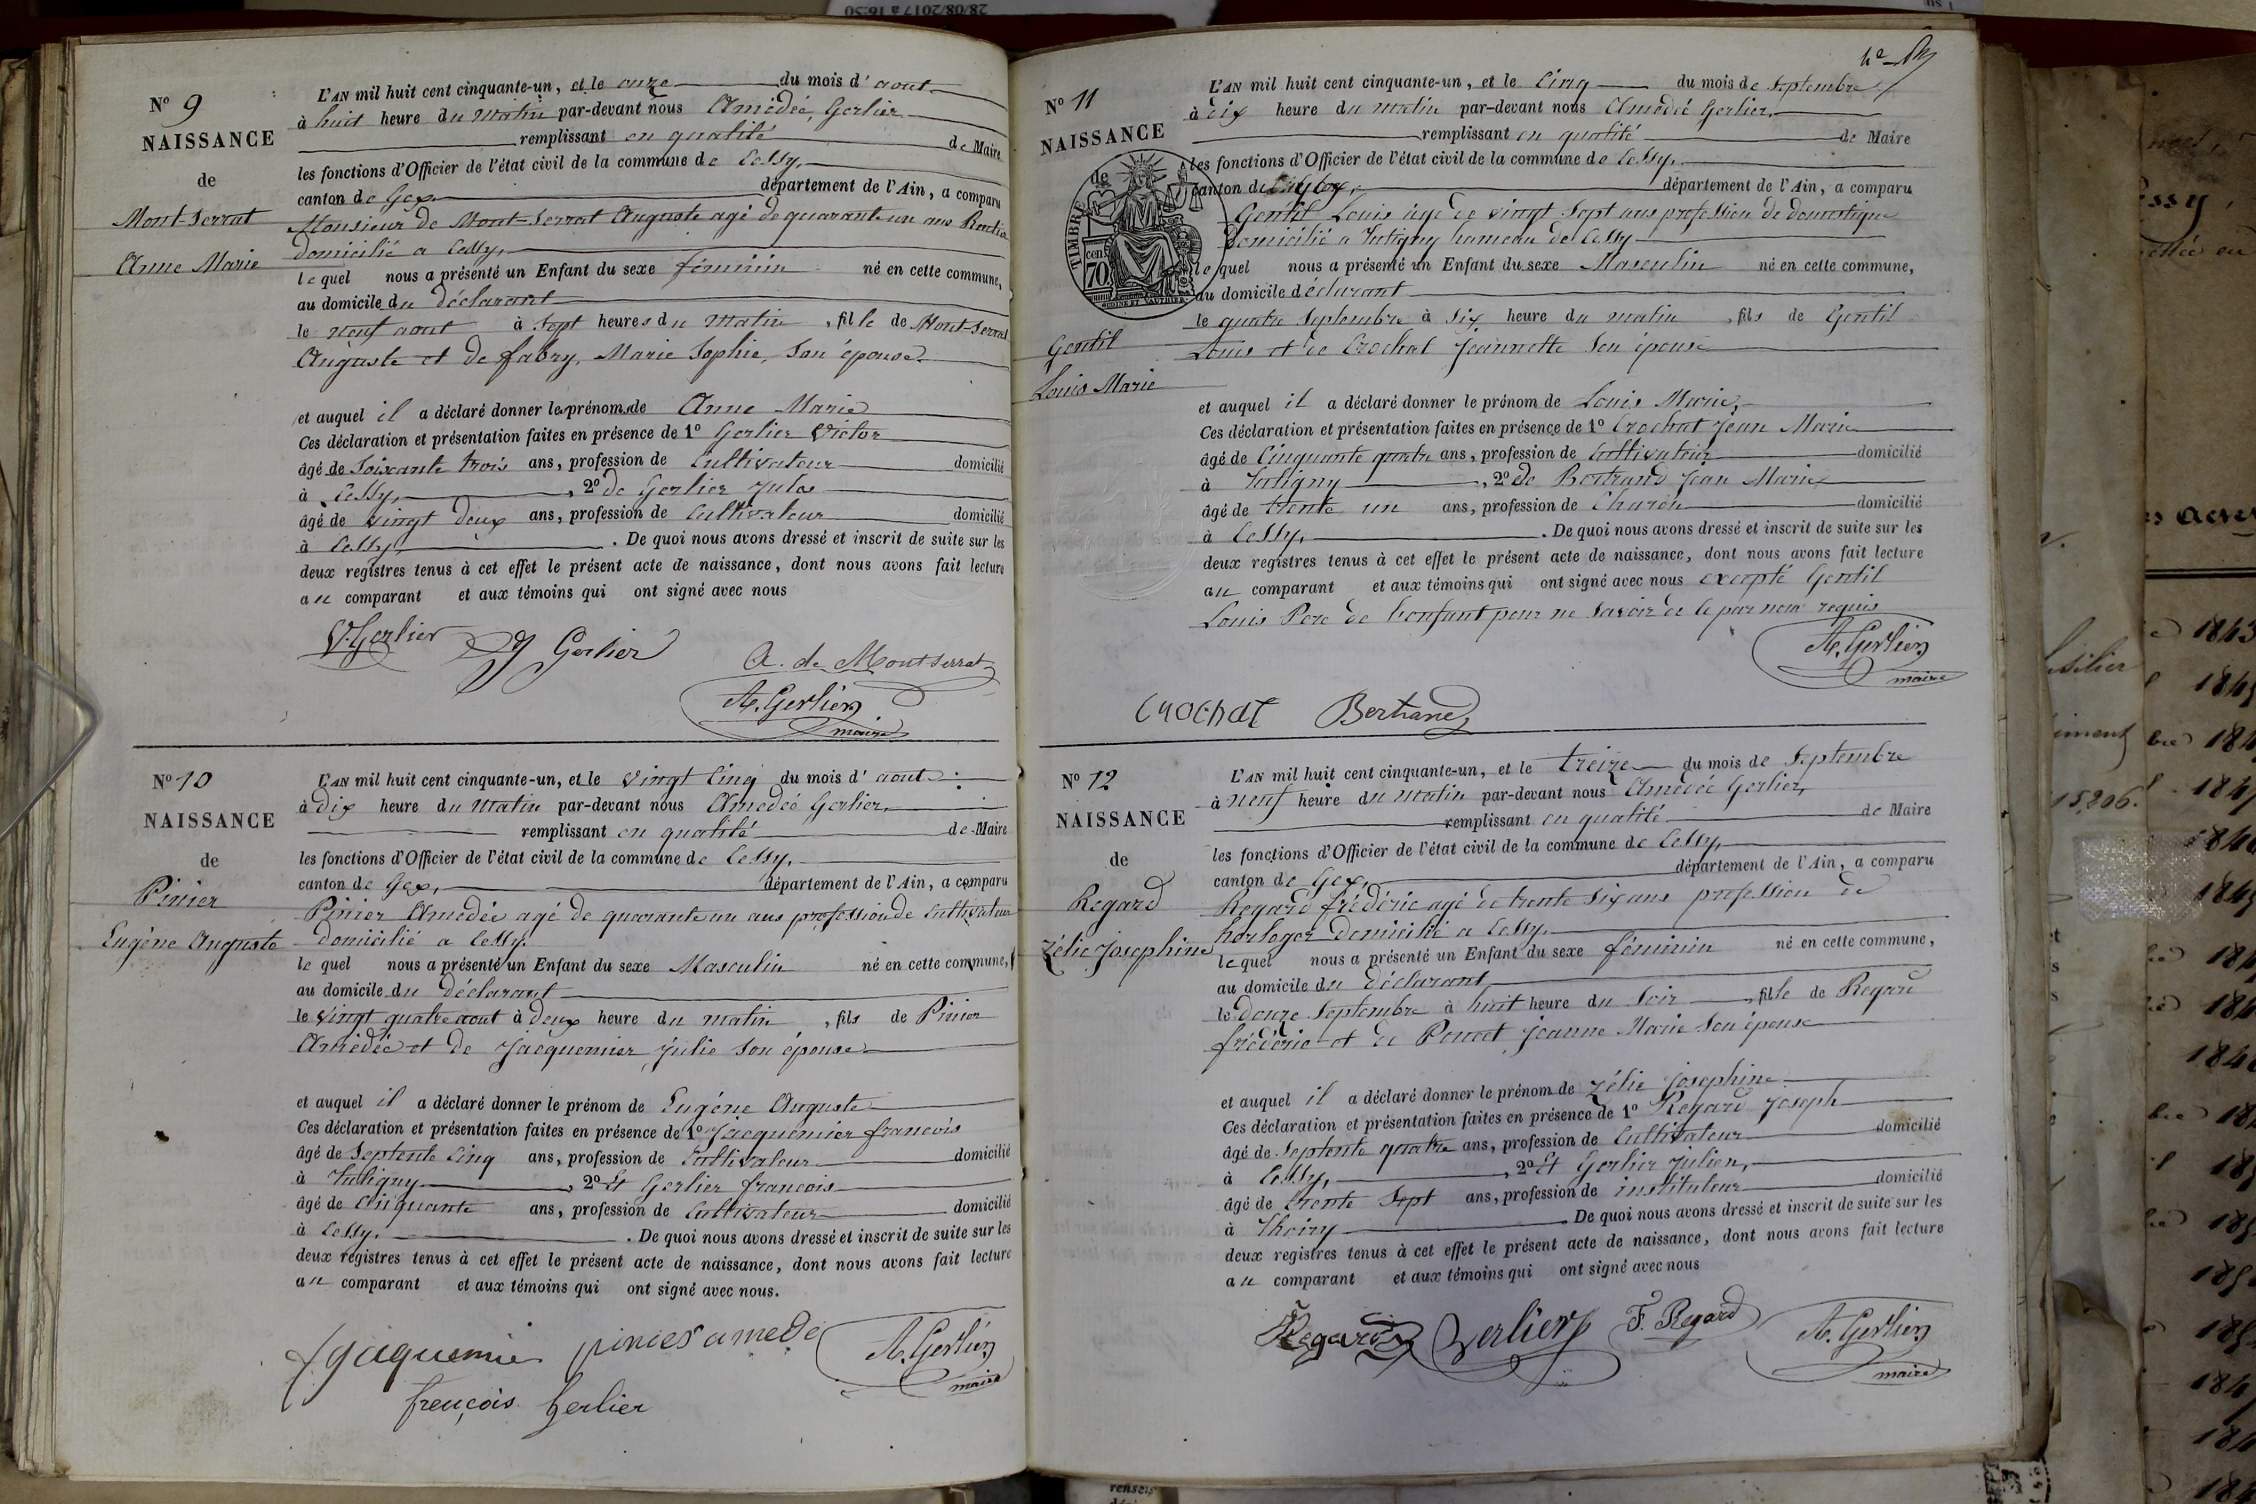 28/08/2017 à 16:50
N° 9
NAISSANCE
de
Mont-Serrat
Anne Marie
L'AN mil huit cent cinquante-un, et le onze du mois d'aout
à huit heure du matin par-devant nous Amédée, Gerlier
remplissant en qualité de Maire
les fonctions d'Officier de l'état civil de la commune de Cessy,
canton de Gex, département de l'Ain, a comparu
Monsieur de Mont-Serrat Auguste agé de quarante un ans Rentier
domicilié a Cessy,
lequel nous a présenté un Enfant du sexe féminin né en cette commune,
au domicile du déclarant
le neuf aout à sept heures du matin, fille de Mont-Serrat
Auguste et de fabry, Marie Sophie, son épouse
et auquel il a déclaré donner les prénoms de Anne Marie
Ces déclaration et présentation faites en présence de 1° Gerlier Victor
âgé de soixante trois ans, profession de Cultivateur domicilié
à Cessy, 2° de Gerlier Jules
âgé de vingt deux ans, profession de Cultivateur domicilié
à Cessy. De quoi nous avons dressé et inscrit de suite sur les
deux registres tenus à cet effet le présent acte de naissance, dont nous avons fait lecture
au comparant et aux témoins qui ont signé avec nous
V. Gerlier J Gerlier A. de Montserrat
A. Gerlier
maire
N° 10
NAISSANCE
de
Pinier
Eugène Auguste
L'AN mil huit cent cinquante-un, et le vingt cinq du mois d'aout
à dix heure du matin par-devant nous Amédée Gerlier,
remplissant en qualité de Maire
les fonctions d'Officier de l'état civil de la commune de Cessy,
canton de Gex, département de l'Ain, a comparu
Pinier Amédée agé de quarante un ans profession de cultivateur
domicilié a Cessy.
lequel nous a présenté un Enfant du sexe Masculin né en cette commune,
au domicile du déclarant
le vingt quatre aout à deux heure du matin, fils de Pinier
Amédée et de Jacquemier Julie son épouse
et auquel il a déclaré donner le prénom de Eugène Auguste
Ces déclaration et présentation faites en présence de 1° Jacquemier francois
âgé de Septente cinq ans, profession de Cultivateur domicilié
à Tutigny, 2° Et Gerlier francois
âgé de cinquante ans, profession de Cultivateur domicilié
à Cessy. De quoi nous avons dressé et inscrit de suite sur les
deux registres tenus à cet effet le présent acte de naissance, dont nous avons fait lecture
au comparant et aux témoins qui ont signé avec nous.
f jaquemie pinier amede A. Gerlier
maire
frençois gerlier
N° 11
NAISSANCE
de
TIMBRE
70 cen.
Gentil
Louis Marie
L'AN mil huit cent cinquante-un, et le Cinq du mois de Septembre
à dix heure du matin par-devant nous Amédée Gerlier,
remplissant en qualité de Maire
les fonctions d'Officier de l'état civil de la commune de Cessy,
canton de Gex, département de l'Ain, a comparu
Gentil Louis âgé de vingt sept ans profession de domestique
Domicilié a Tutigny hameau de Cessy
lequel nous a présenté un Enfant du sexe Masculin né en cette commune,
au domicile déclarant
le quatre Septembre à six heure du matin, fils de Gentil
Louis et de Crochat Jeannette son épouse
et auquel il a déclaré donner le prénom de Louis Marie,
Ces déclaration et présentation faites en présence de 1° Crochat Jean Marie
âgé de Cinquante quatre ans, profession de Cultivateur domicilié
à Tutigny, 2° de Bertrand Jean Marie
âgé de trente un ans, profession de Charon domicilié
à Cessy,. De quoi nous avons dressé et inscrit de suite sur les
deux registres tenus à cet effet le présent acte de naissance, dont nous avons fait lecture
au comparant et aux témoins qui ont signé avec nous excepté Gentil
Louis Pere de l'enfant pour ne savoir de ce par nous requis
A. Gerlier
maire
Crochat Bertrand
N° 12
NAISSANCE
de
Regard
Zélie Josephine
L'AN mil huit cent cinquante-un, et le treize du mois de Septembre
à neuf heure du matin par-devant nous Amédée Gerlier,
remplissant en qualité de Maire
les fonctions d'Officier de l'état civil de la commune de Cessy,
canton de Gex, département de l'Ain, a comparu
Regard frédéric agé de trente six ans profession de
horloger domicilié a Cessy.
lequel nous a présenté un Enfant du sexe féminin né en cette commune,
au domicile du déclarant
le douze Septembre à huit heure du Soir, fille de Regard
frédéric et de Poncet Jeanne Marie son épouse
et auquel il a déclaré donner le prénom de Zélie Josephine
Ces déclaration et présentation faites en présence de 1° Regard Joseph
âgé de Septente quatre ans, profession de Cultivateur domicilié
à Cessy, 2° Et Gerlier Julien,
âgé de trente Sept ans, profession de instituteur domicilié
à Thoiry. De quoi nous avons dressé et inscrit de suite sur les
deux registres tenus à cet effet le présent acte de naissance, dont nous avons fait lecture
au comparant et aux témoins qui ont signé avec nous
Regard Gerlier F. Regard A. Gerlier
maire